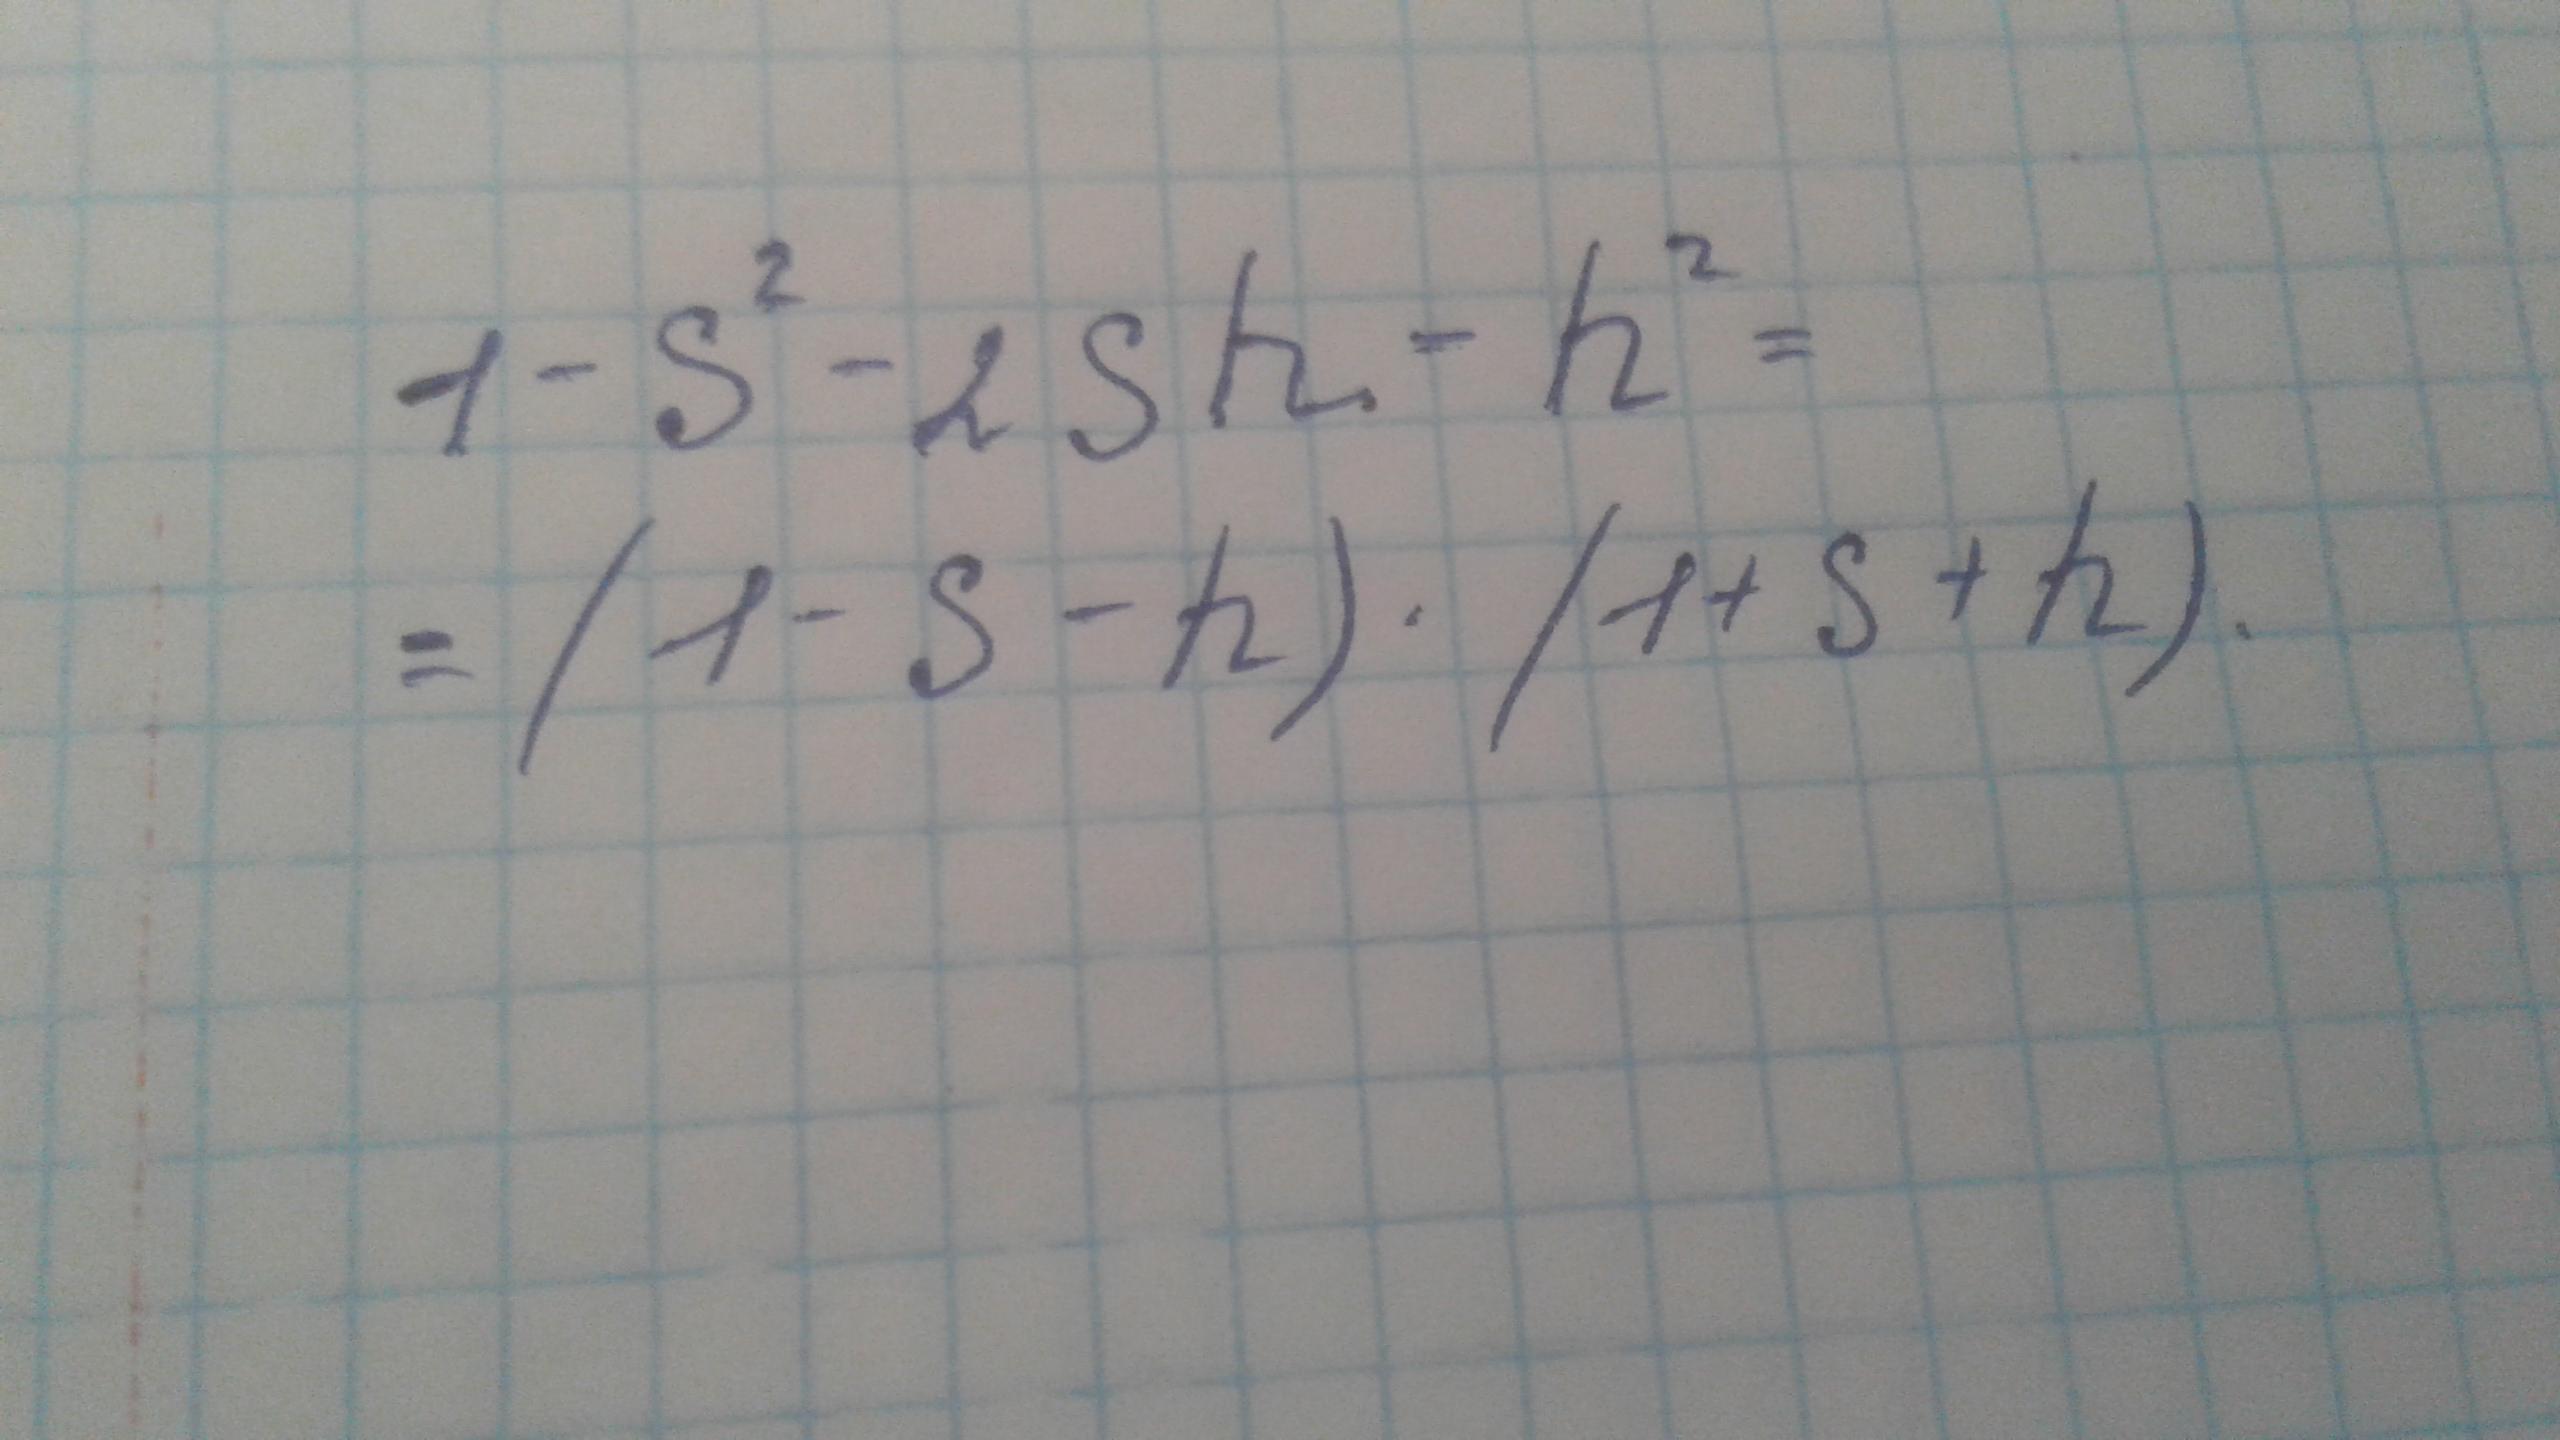 1 - S² - 2Sh - h² =
= (1 - S - h) · (1 + S + h).